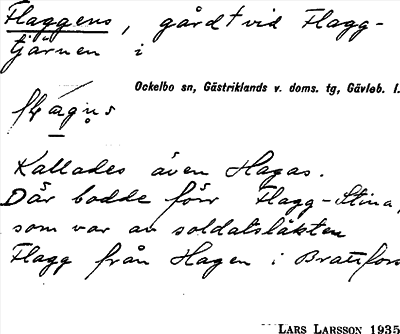 Flaggens, gård vid Flagg-
tjärnen i
Ockelbo sn, Gästriklands v. doms. tg, Gävleb. l.
flagns
Kallades även Hagas.
Där bodde förr Flagg-Stina,
som var av soldatsläkten
Flagg från Hagen i Brattfors
LARS LARSSON 1935